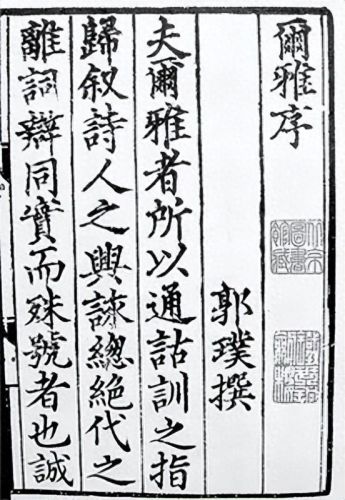 爾雅序
北京圖書館藏
郭璞撰
夫爾雅者所以通詁訓之指
歸叙詩人之興詠總絕代之
離詞辯同實而殊號者也誠